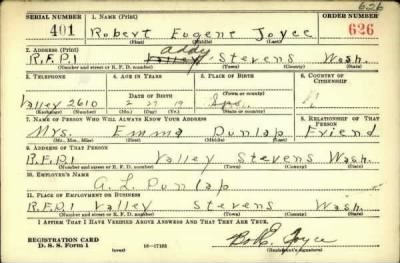 626
SERIAL NUMBER 1. NAME (Print) ORDER NUMBER
401 Robert Eugene Joyce 626
(First) (Middle) (Last)
2. ADDRESS (Print) addy
R.F.D.1 Valley Stevens Wash.
(Number and street or R. F. D. number) (Town) (County) (State)
3. TELEPHONE 4. AGE IN YEARS 5. PLACE OF BIRTH 6. COUNTRY OF CITIZENSHIP
DATE OF BIRTH
Valley 2610 2 27 19
7. NAME OF PERSON WHO WILL ALWAYS KNOW YOUR ADDRESS 8. RELATIONSHIP OF THAT PERSON
Mrs. Emma Dunlap Friend
(Mr., Mrs., Miss) (First) (Middle) (Last)
9. ADDRESS OF THAT PERSON
R.F.D.1 Valley Stevens Wash.
(Number and street or R. F. D. number) (Town) (County) (State)
10. EMPLOYER'S NAME
A. L. Dunlap
11. PLACE OF EMPLOYMENT OR BUSINESS
R.F.D.1 Valley Stevens Wash.
(Number and street or R. F. D. number) (Town) (County) (State)
I AFFIRM THAT I HAVE VERIFIED ABOVE ANSWERS AND THAT THEY ARE TRUE.
REGISTRATION CARD
D. S. S. Form 1 (over) Bob E. Joyce
(Registrant's signature)